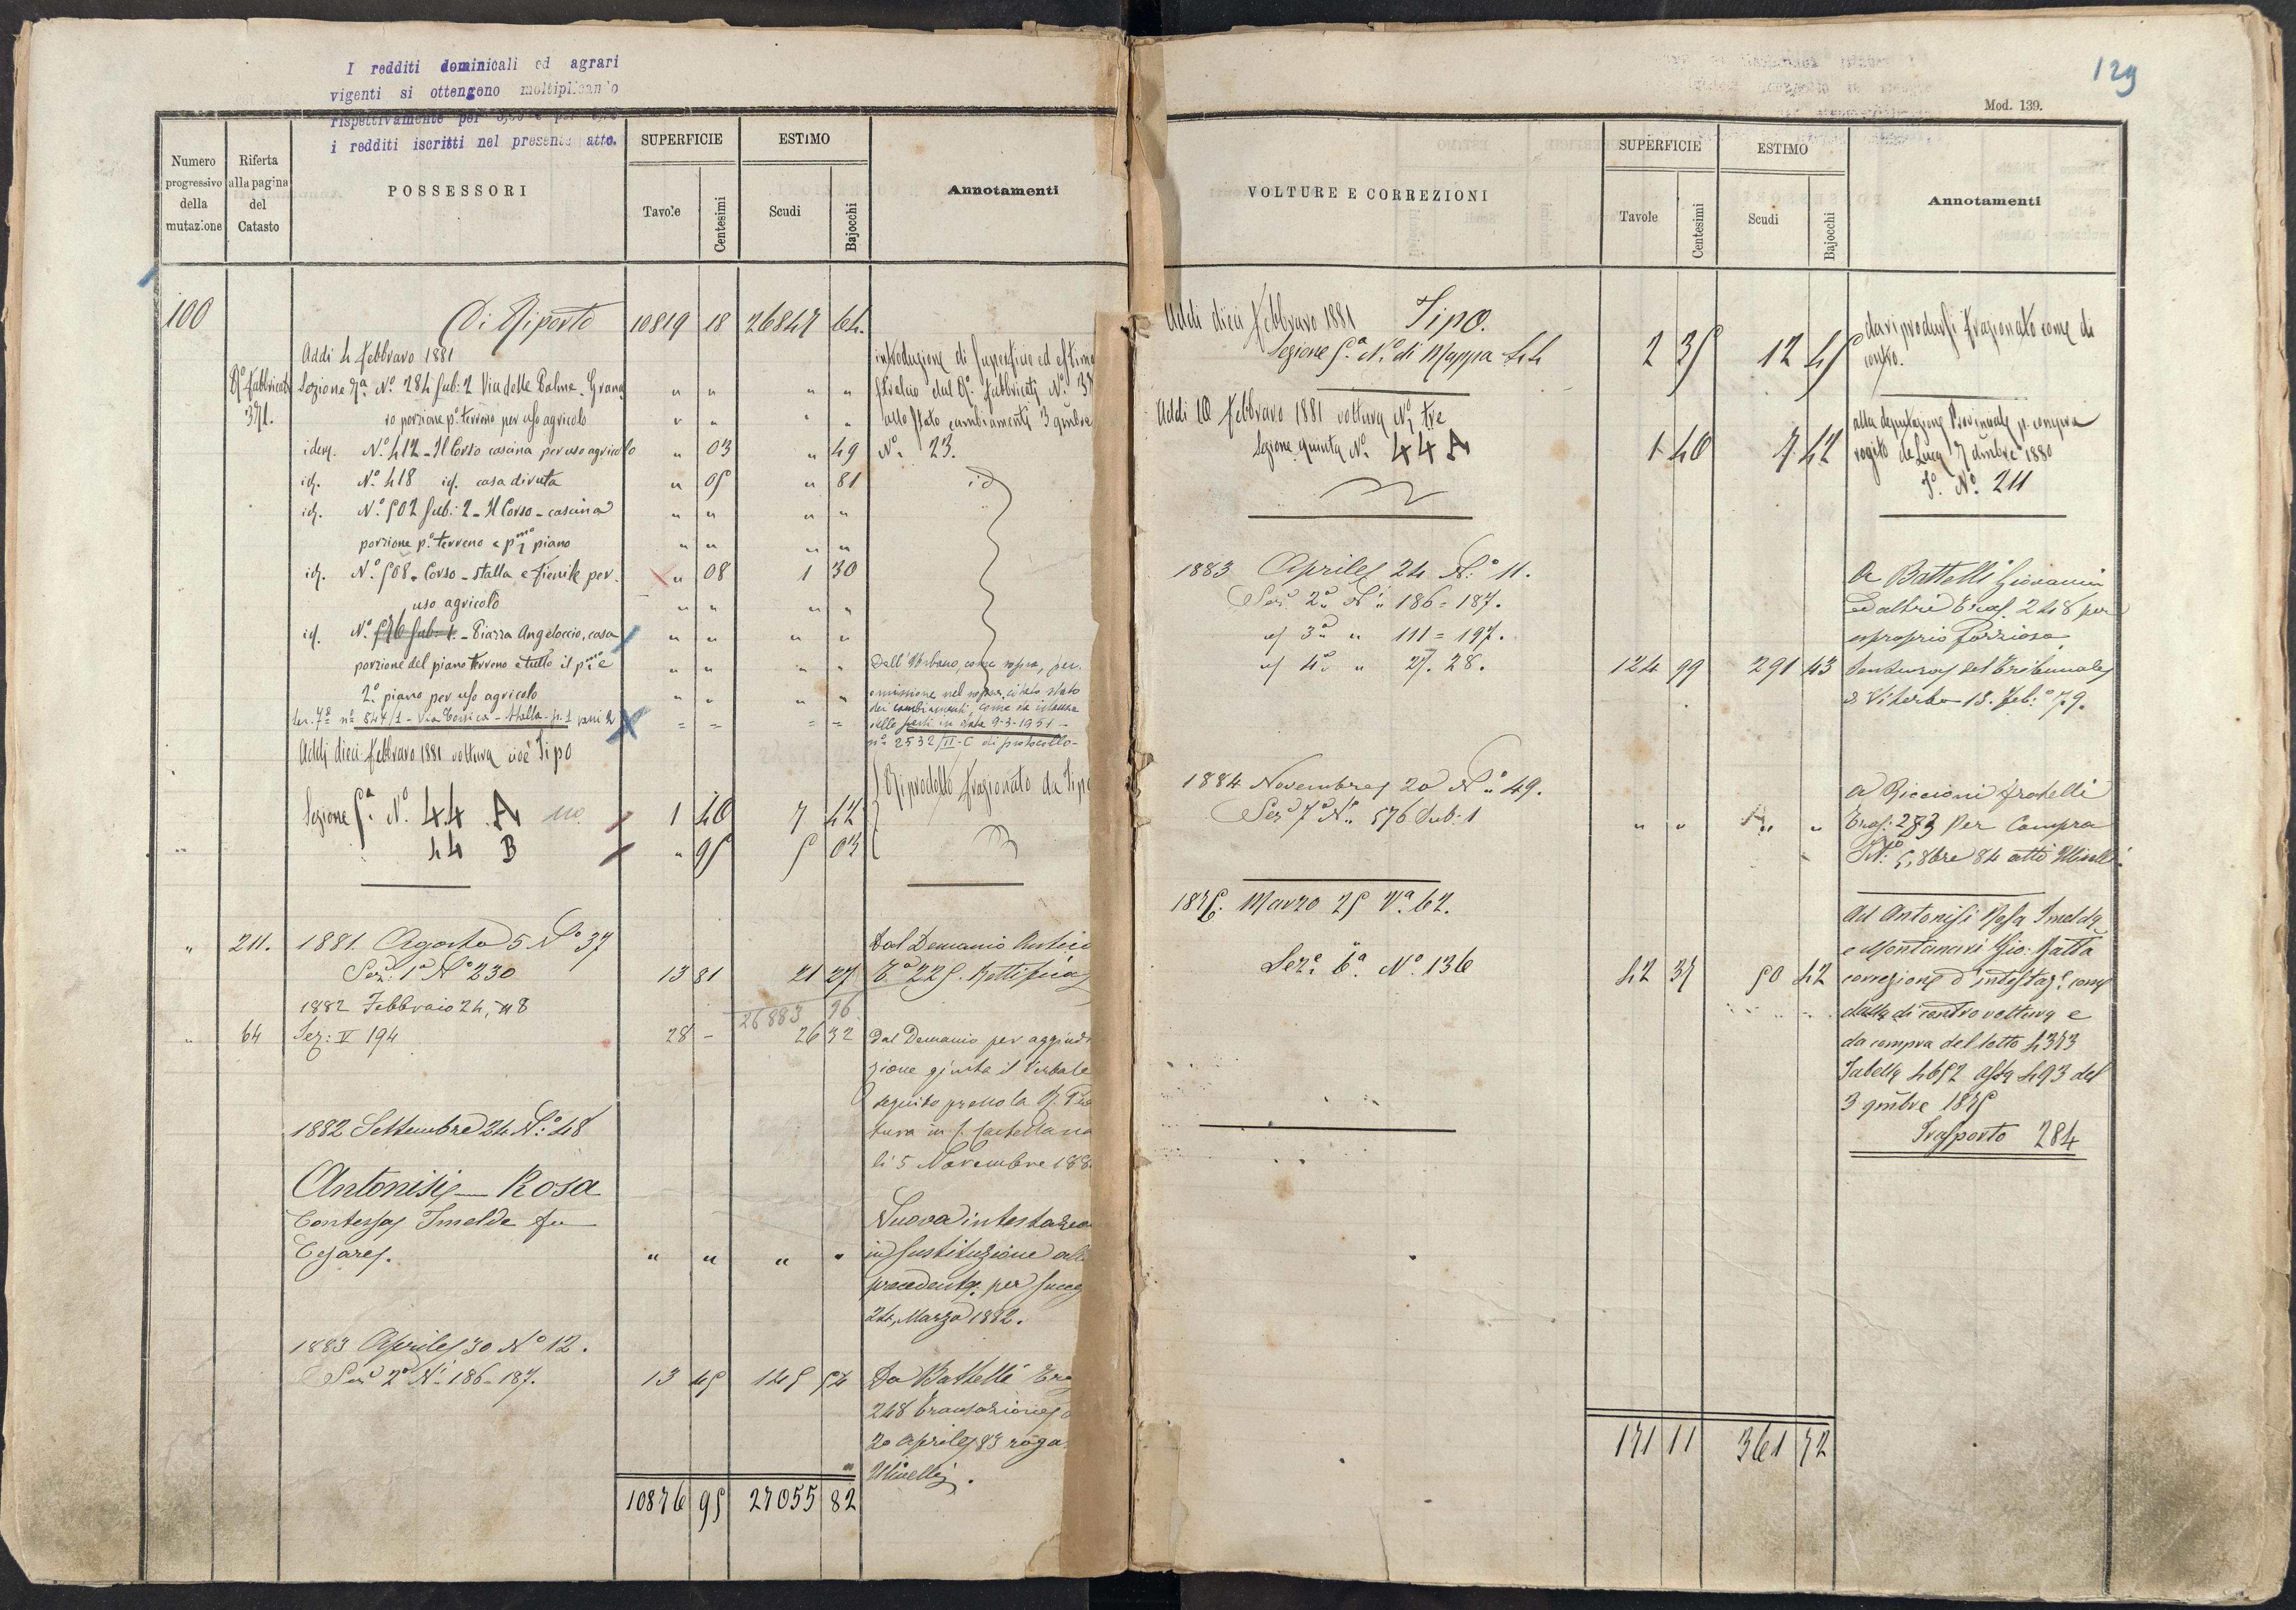 I redditi dominicali ed agrari
vigenti si ottengono moltiplicando
rispettivamente per
i redditi iscritti nel presente atto.
Numero progressivo della mutazione
Riferta alla pagina del Catasto
POSSESSORI
SUPERFICIE
Tavole
Centesimi
ESTIMO
Scudi
Bajocchi
Annotamenti
100 Di Riporto 10819 18 26847 64.
Addi 4 Febbraro 1881
Ro. Fabbricati Sezione 7a. No. 284 sub: 2 Via delle Palme. Grana " " " "
371. ro porzione po. terreno per uso agricolo " " " "
idem. No. 412 - Il Corso cascina per uso agricolo " 03 " 49
id. No. 418 id. casa diruta " 05 " 81
id. No. 502 sub: 2 - Il Corso - cascina " " " "
porzione po. terreno e pmo piano " " " "
id. No. 508. Corso - stalla e fienile per. " 08 1 30
uso agricolo " " " "
id. No. 576 sub. 1. - Piazza Angeloccio, casa " " " "
porzione del piano terreno e tutto il pmo e " " " "
2o. piano per uso agricolo " " " "
Sez. 7a no 547/1 - Via - Stalla - p. 1 vani 2 = = = =
introduzione di superficie ed estimo
stralcio dal Ro. Fabbricati No. 37
allo stato cambiamenti 3 9mbre
No. 23.
id
Dall'Urbano come sopra, per.
omissione nel sopra citato stato
dei cambiamenti, come da istanza
delle parti in data 9-3-1951 -
no 2532/II-C di protocollo -
Addi dieci Febbraro 1881 voltura cioè Tipo
Sezione 5a. No. 44 A no 1 40 7 42
" 44 B " 95 5 03
Riprodotto frazionato da Tipo
" 211. 1881 Agosto 5 No 37
Sez: 1a No 230 13 81 21 27
Dal Demanio Rustico
Ta 225. Rettifica
26883 96
1882 Febbraio 24, n 8
" 64 Sez: V 194 28 - 26 32
Dal Demanio per aggiudi
zione giusta il Verbale
seguito presso la R. Pre
tura in C. Castellana
li 5 Novembre 188
1882 Settembre 24 No: 48
Antonisi Rosa
Contessa Imelde fu
Cesare. " " " "
Nuova intestazion
in sustituzione alla
precedente per succe
24, Marzo 1882.
1883 Aprile 30 No 12.
Sez 2a Ni. 186-187. 13 45 145 52
Da Battelli Tras
248 transazione
20 Aprile 83 roga
Ulivelli.
10876 95 27055 82
129
Mod. 139.
VOLTURE E CORREZIONI
SUPERFICIE
Tavole
Centesimi
ESTIMO
Scudi
Bajocchi
Annotamenti
Addi dieci Febbraro 1881 Tipo.
Sezione 5a. No. di Mappa 44 2 35 12 45
da riprodursi frazionato come di
contro.
Addi 10 Febbraro 1881 voltura No. tre
Sezione quinta No. 44 A 1 40 7 42
alla deputazione Provinciale p. compra
rogito de Luca 7 dmbre 1880
To. No. 211
1883 Aprile 24 No: 11.
Sez. 2a Ni. 186=187.
id 3a " 111=197.
id 4a " 27. 28. 124 99 291 43
A Battelli Giovanni
ed altri Tras. 248 per
esproprio forzioso
Sentenza del Tribunale
di Viterbo 18. Feb: 79.
1884 Novembre 20 No. 49.
Sez 7a No. 576 Sub: 1 " " " "
A Riccioni fratelli
Tras: 283 Per Compra
5, 8bre 84 atti Ulivelli.
1875. Marzo 25 Va. 62.
Seze. 6a. No. 136 42 37 50 42
Ad Antonisi Rosa Imelda
e Montanari Gio: Batta
correzione d'intestaze. come
dalla di contro voltura e
da compra del lotto 4373
Tabella 4652 asta 493 del
3 9mbre 1875
Trasporto 284
171 11 361 72